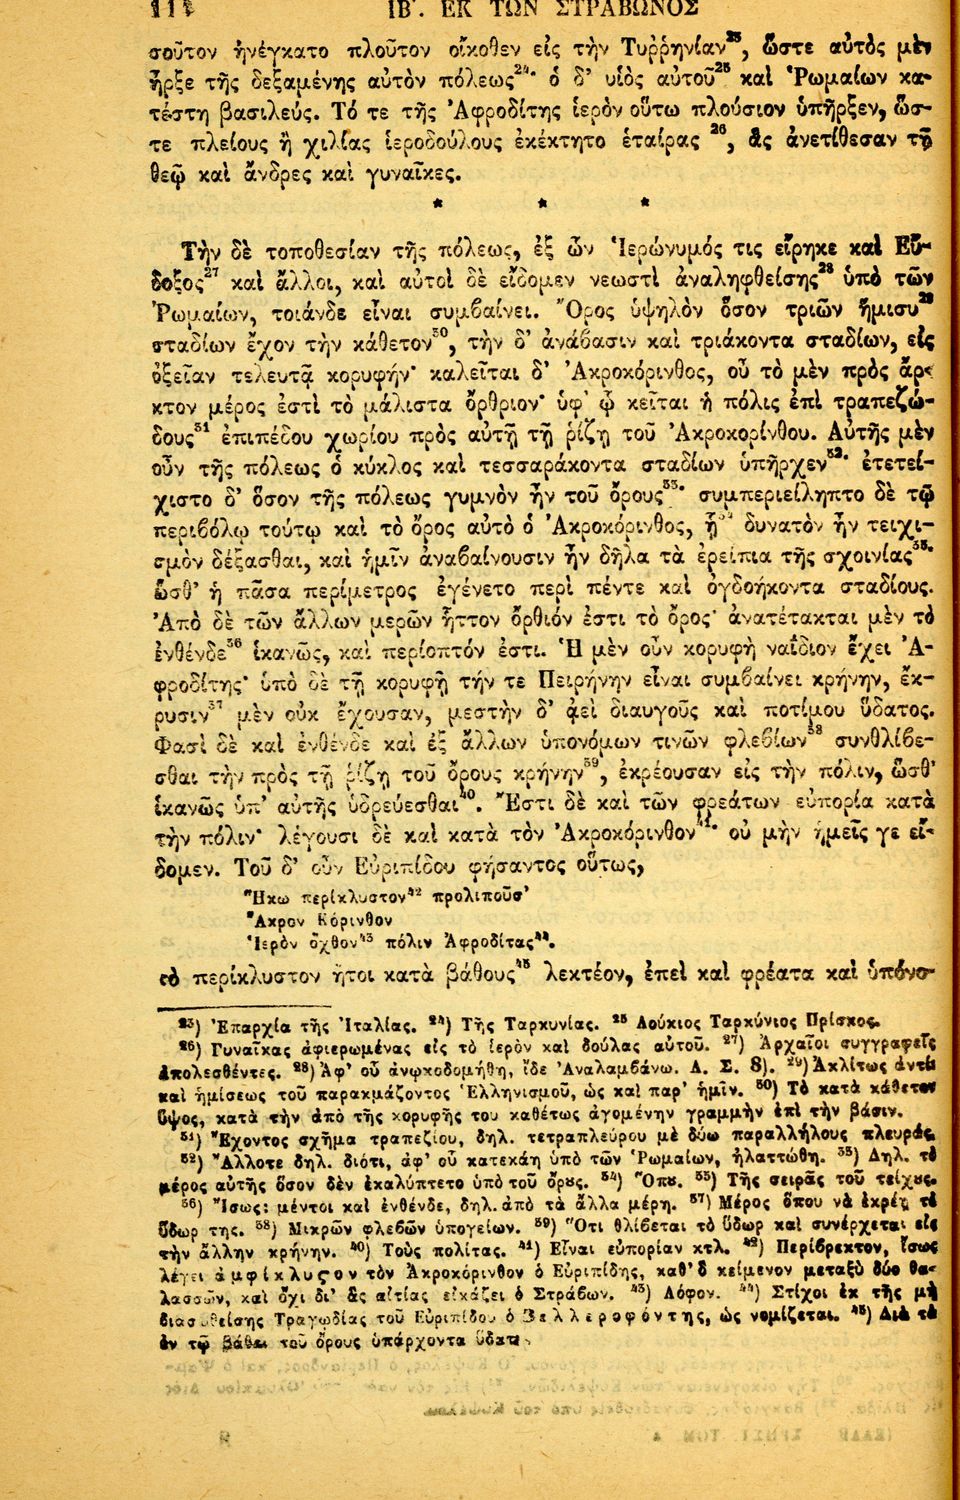 ΙΒʹ. ΕΚ ΤΩΝ ΣΤΡΑΒΩΝΟΣ
σοῦτον ἠνέγκατο πλοῦτον οἴκοθεν εἰς τὴν Τυῤῥηνίαν²³, ὥστε αὐτὸς μὲν
ἦρξε τῆς δεξαμένης αὐτὸν πόλεως²⁴· ὁ δ' υἱὸς αὐτοῦ²⁵ καὶ Ῥωμαίων κα-
τέστη βασιλεύς. Τό τε τῆς Ἀφροδίτης ἱερὸν οὕτω πλούσιον ὑπῆρξεν, ὥσ-
τε πλείους ἢ χιλίας ἱεροδούλους ἐκέκτητο ἑταίρας ²⁶, ἃς ἀνετίθεσαν τῇ
θεῷ καὶ ἄνδρες καὶ γυναῖκες.
* * *
Τὴν δὲ τοποθεσίαν τῆς πόλεως, ἐξ ὧν Ἱερώνυμός τις εἴρηκε καὶ Εὔ-
δοξος²⁷ καὶ ἄλλοι, καὶ αὐτοὶ δὲ εἴδομεν νεωστὶ ἀναληφθείσης²⁸ ὑπὸ τῶν
Ῥωμαίων, τοιάνδε εἶναι συμβαίνει. Ὄρος ὑψηλὸν ὅσον τριῶν ἥμισυ²⁹
σταδίων ἔχον τὴν κάθετον³⁰, τὴν δ' ἀνάβασιν καὶ τριάκοντα σταδίων, εἰς
ὀξεῖαν τελευτᾷ κορυφήν· καλεῖται δ' Ἀκροκόρινθος, οὗ τὸ μὲν πρὸς ἄρ-
κτον μέρος ἐστὶ τὸ μάλιστα ὄρθριον· ὑφ' ᾧ κεῖται ἡ πόλις ἐπὶ τραπεζώ-
δους³¹ ἐπιπέδου χωρίου πρὸς αὐτῇ τῇ ῥίζῃ τοῦ Ἀκροκορίνθου. Αὐτῆς μὲν
οὖν τῆς πόλεως ὁ κύκλος καὶ τεσσαράκοντα σταδίων ὑπῆρχεν³²· ἐτετεί-
χιστο δ' ὅσον τῆς πόλεως γυμνὸν ἦν τοῦ ὄρους³³· συμπεριείληπτο δὲ τῷ
περιβόλῳ τούτῳ καὶ τὸ ὄρος αὐτὸ ὁ Ἀκροκόρινθος, ᾗ³⁴ δυνατὸν ἦν τειχι-
σμὸν δέξασθαι, καὶ ἡμῖν ἀναβαίνουσιν ἦν δῆλα τὰ ἐρείπια τῆς σχοινίας³⁵·
ὥσθ' ἡ πᾶσα περίμετρος ἐγένετο περὶ πέντε καὶ ὀγδοήκοντα σταδίους.
Ἀπὸ δὲ τῶν ἄλλων μερῶν ἧττον ὄρθιόν ἐστι τὸ ὄρος· ἀνατέτακται μὲν τὸ
ἐνθένδε³⁶ ἱκανῶς, καὶ περίοπτόν ἐστι. Ἡ μὲν οὖν κορυφὴ ναΐδιον ἔχει Ἀ-
φροδίτης· ὑπὸ δὲ τῇ κορυφῇ τήν τε Πειρήνην εἶναι συμβαίνει κρήνην, ἔκ-
ρυσιν³⁷ μὲν οὐκ ἔχουσαν, μεστὴν δ' ἀεὶ διαυγοῦς καὶ ποτίμου ὕδατος.
Φασὶ δὲ καὶ ἐνθένδε καὶ ἐξ ἄλλων ὑπονόμων τινῶν φλεβίων³⁸ συνθλίβε-
σθαι τὴν πρὸς τῇ ῥίζῃ τοῦ ὄρους κρήνην³⁹, ἐκρέουσαν εἰς τὴν πόλιν, ὥσθ'
ἱκανῶς ὑπ' αὐτῆς ὑδρεύεσθαι⁴⁰. Ἔστι δὲ καὶ τῶν φρεάτων εὐπορία κατὰ
τὴν πόλιν· λέγουσι δὲ καὶ κατὰ τὸν Ἀκροκόρινθον⁴¹· οὐ μὴν ἡμεῖς γε εἴ-
δομεν. Τοῦ δ' οὖν Εὐριπίδου φήσαντος οὕτως,
Ἥκω περίκλυστον⁴² προλιποῦσ'
Ἄκρον Κόρινθον
Ἱερὸν ὄχθον⁴³ πόλιν Ἀφροδίτας⁴⁴.
τὸ περίκλυστον ἤτοι κατὰ βάθους⁴⁵ λεκτέον, ἐπεὶ καὶ φρέατα καὶ ὑπόνο-
²³) Ἐπαρχία τῆς Ἰταλίας. ²⁴) Τῆς Ταρκυνίας. ²⁵ Λούκιος Ταρκύνιος Πρίσκος.
²⁶) Γυναῖκας ἀφιερωμένας εἰς τὸ ἱερὸν καὶ δούλας αὐτοῦ. ²⁷) Ἀρχαῖοι συγγραφεῖς
ἀπολεσθέντες. ²⁸) Ἀφ' οὗ ἀνῳκοδομήθη, ἴδε Ἀναλαμβάνω. Λ. Σ. 8). ²⁹) Ἀκλίτως ἀντὶ
καὶ ἡμίσεως τοῦ παρακμάζοντος Ἑλληνισμοῦ, ὡς καὶ παρ' ἡμῖν. ³⁰) Τὸ κατὰ κάθετον
ὕψος, κατὰ τὴν ἀπὸ τῆς κορυφῆς του καθέτως ἀγομένην γραμμὴν ἐπὶ τὴν βάσιν.
³¹) Ἔχοντος σχῆμα τραπεζίου, δηλ. τετραπλεύρου μὲ δύω παραλλήλους πλευράς.
³²) Ἄλλοτε δηλ. διότι, ἀφ' οὗ κατεκάη ὑπὸ τῶν Ῥωμαίων, ἠλαττώθη. ³³) Δηλ. τὸ
μέρος αὐτῆς ὅσον δὲν ἐκαλύπτετο ὑπὸ τοῦ ὄρȣς. ³⁴) Ὅπȣ. ³⁵) Τῆς σειρᾶς τοῦ τείχȣς.
³⁶) Ἴσως: μέντοι καὶ ἐνθένδε, δηλ. ἀπὸ τὰ ἄλλα μέρη. ³⁷) Μέρος ὅπου νὰ ἐκρέῃ τὸ
ὕδωρ της. ³⁸) Μικρῶν φλεβῶν ὑπογείων. ³⁹) Ὅτι θλίβεται τὸ ὕδωρ καὶ συνέρχεται εἰς
τὴν ἄλλην κρήνην. ⁴⁰) Τοὺς πολίτας. ⁴¹) Εἶναι εὐπορίαν κτλ. ⁴²) Περίβρεκτον, ἴσως
λέγει ἀμφίκλυςον τὸν Ἀκροκόρινθον ὁ Εὐριπίδης, καθ' ὃ κείμενον μεταξὺ δύο θα-
λασσῶν, καὶ ὄχι δι' ἃς αἰτίας εἰκάζει ὁ Στράβων. ⁴³) Λόφον. ⁴⁴) Στίχοι ἐκ τῆς μὴ
διασωθείσης Τραγωδίας τοῦ Εὐριπίδου ὁ Βελλεροφόντης, ὡς νομίζεται. ⁴⁵) Διὰ τὰ
ἐν τῷ βάθει τοῦ ὄρους ὑπάρχοντα ὕδατα.